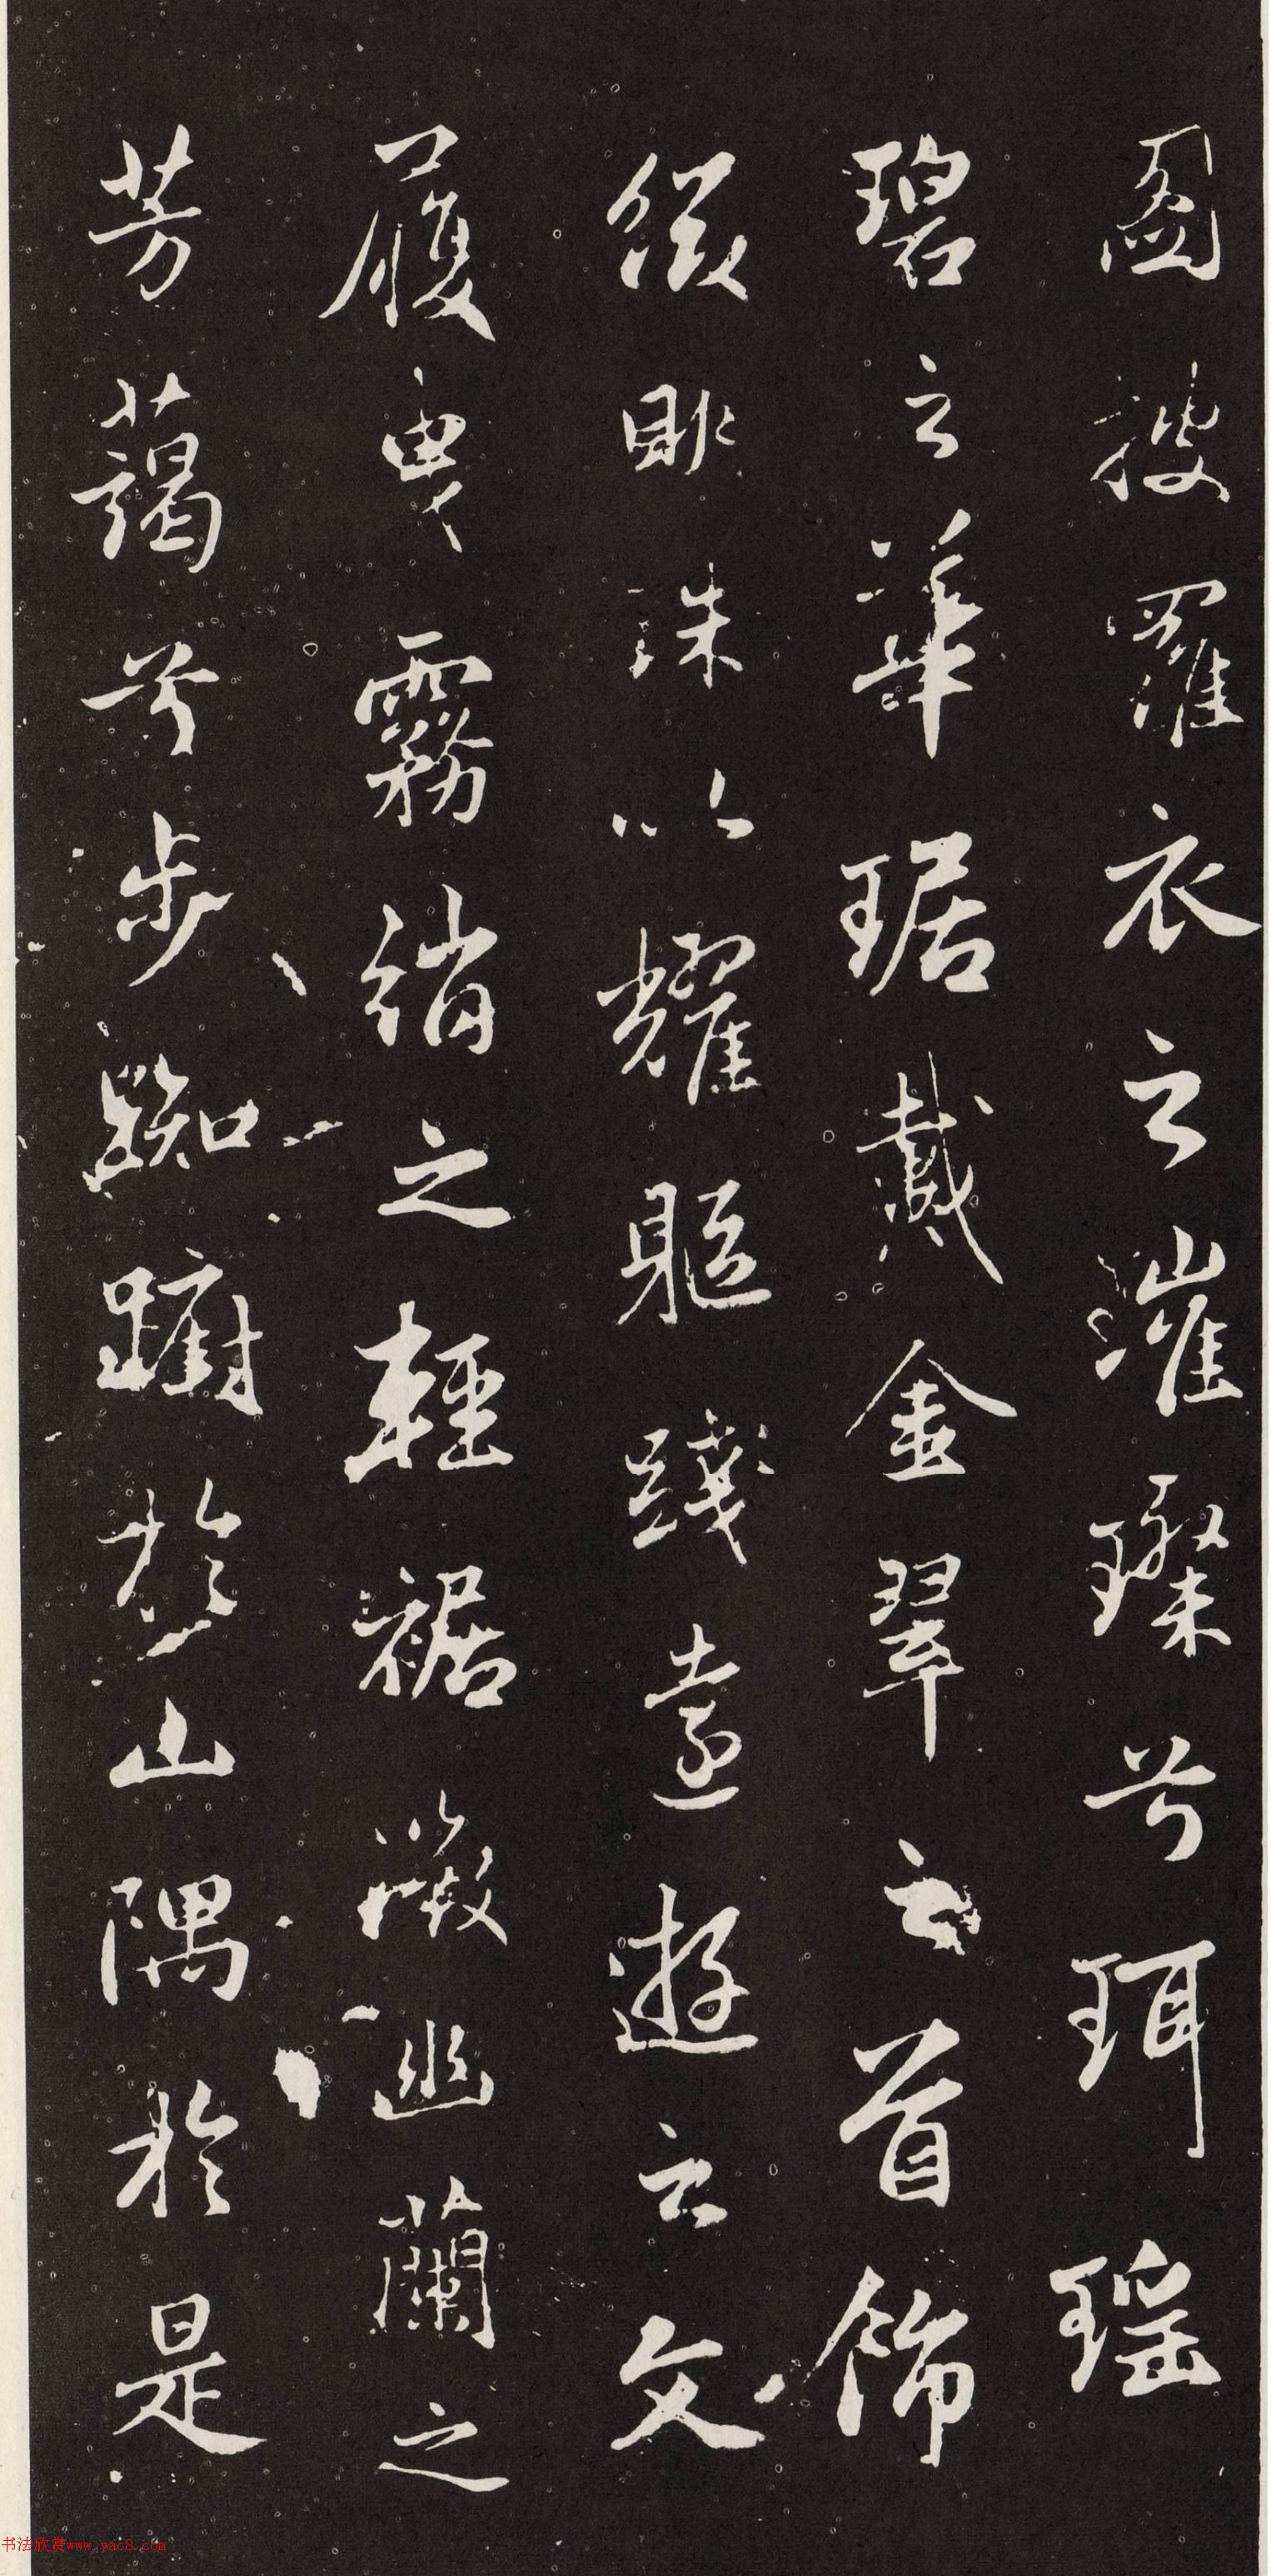 圖披羅衣之漼璨兮珥瑶
碧之華琚戴金翠之首飾
綴明珠以耀軀踐遠遊之文
履曳霧綃之輕裾微幽蘭之
芳藹兮步踟躕於山隅於是
书法欣赏www.yac8.com